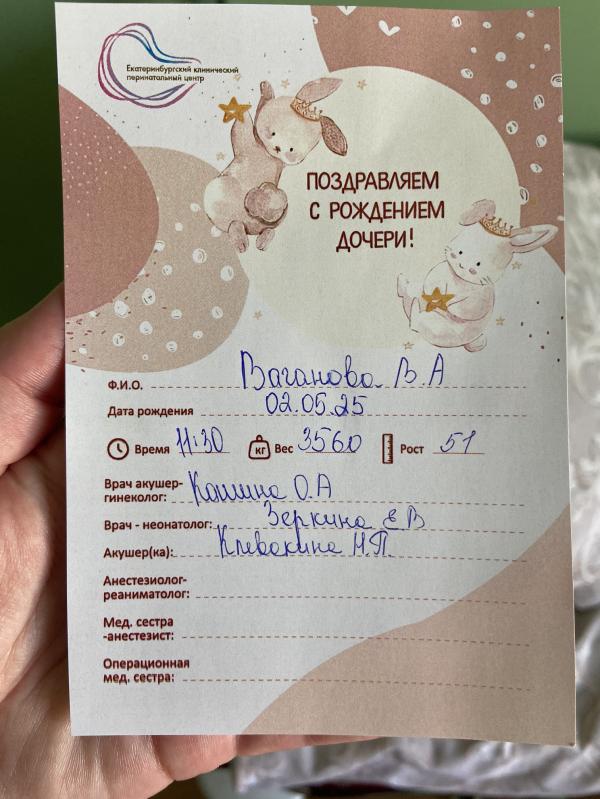 Екатеринбургский клинический
перинатальный центр
ПОЗДРАВЛЯЕМ
С РОЖДЕНИЕМ
ДОЧЕРИ!
Ф.И.О. Ваганова В.А
Дата рождения 02.05.25
Время 11:30 кг Вес 3560 Рост 51
Врач акушер-
гинеколог: О.А
Врач - неонатолог: Зеркина Е В
Акушер(ка): Клевакина Н.П.
Анестезиолог-
реаниматолог:
Мед. сестра
-анестезист:
Операционная
мед. сестра: